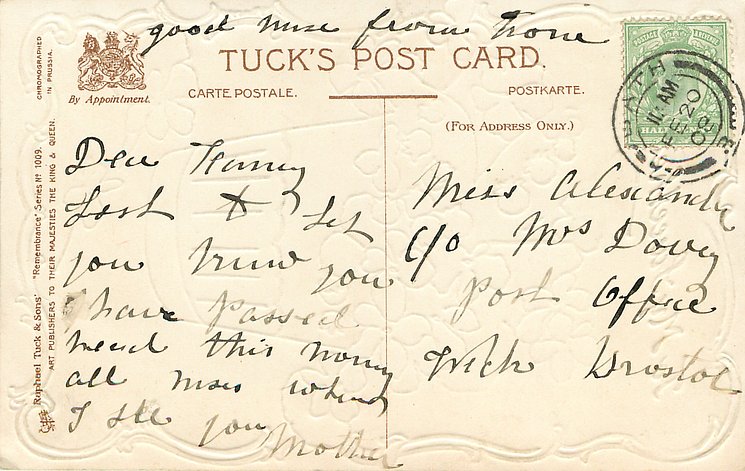 good nuse from home
TUCK'S POST CARD.
By Appointment.
CARTE POSTALE.
POSTKARTE.
(FOR ADDRESS ONLY.)
CHROMOGRAPHED
IN PRUSSIA.
Raphael Tuck & Sons' "Remembrance" Series Nº 1009.
ART PUBLISHERS TO THEIR MAJESTIES THE KING & QUEEN.
POSTAGE
HALF
BATH
11 AM
FE 20
Dear
Just to let
you know you
have passed
this
all when
I see you Mother
Miss Alexander
C/o Mrs Dovey
Post Office
Wick Bristol